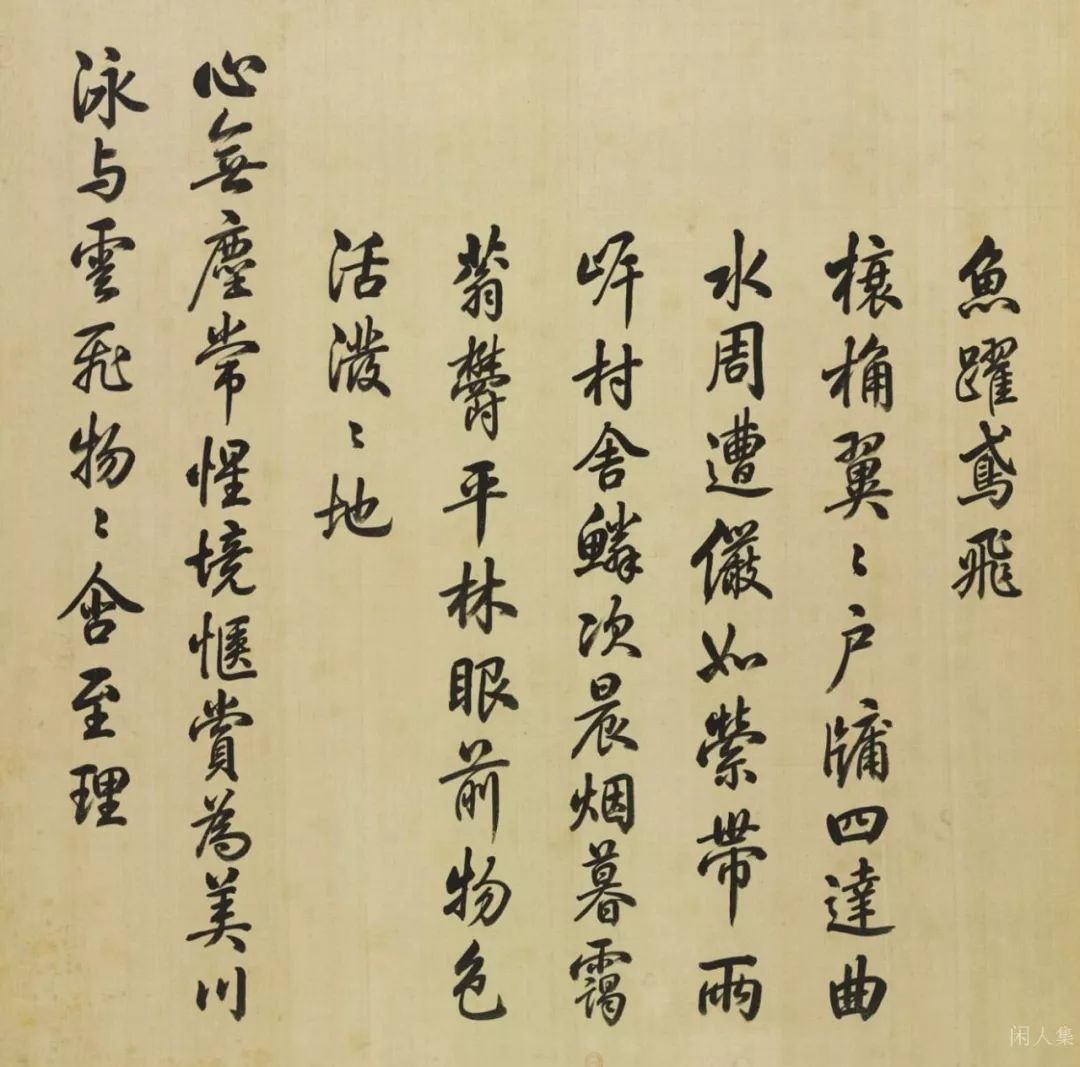 魚躍鳶飛
榱桷翼〻户牖四達曲
水周遭儼如縈帶兩
岸村舎鱗次晨烟暮靄
蓊鬱平林眼前物色
活潑〻地
心無塵常惺境愜賞為美川
泳与雲飛物〻含至理
闲人集